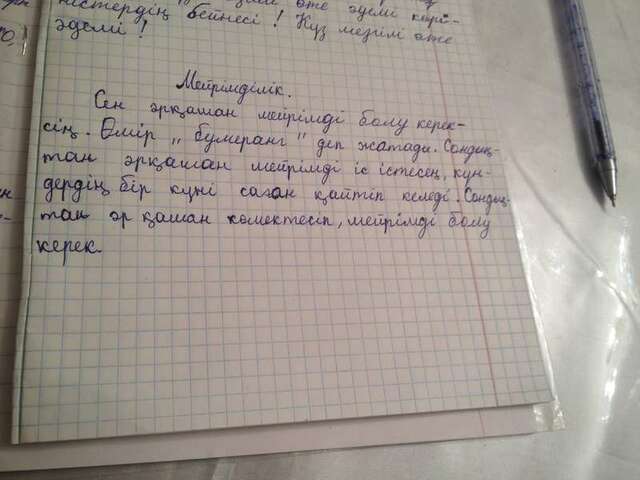 нестердің бейнесі! Күз мезгілі өте
әдемі!
Мейрімділік.
Сен әрқашан мейрімді болу керек-
сің. Өмір „бумеранг" деп жатады. Сондық-
тан әрқашан мейрімді іс істесең, күн-
дердің бір күні саған қайтіп келеді. Сондық-
тан әр қашан көмектесіп, мейрімді болу
керек.